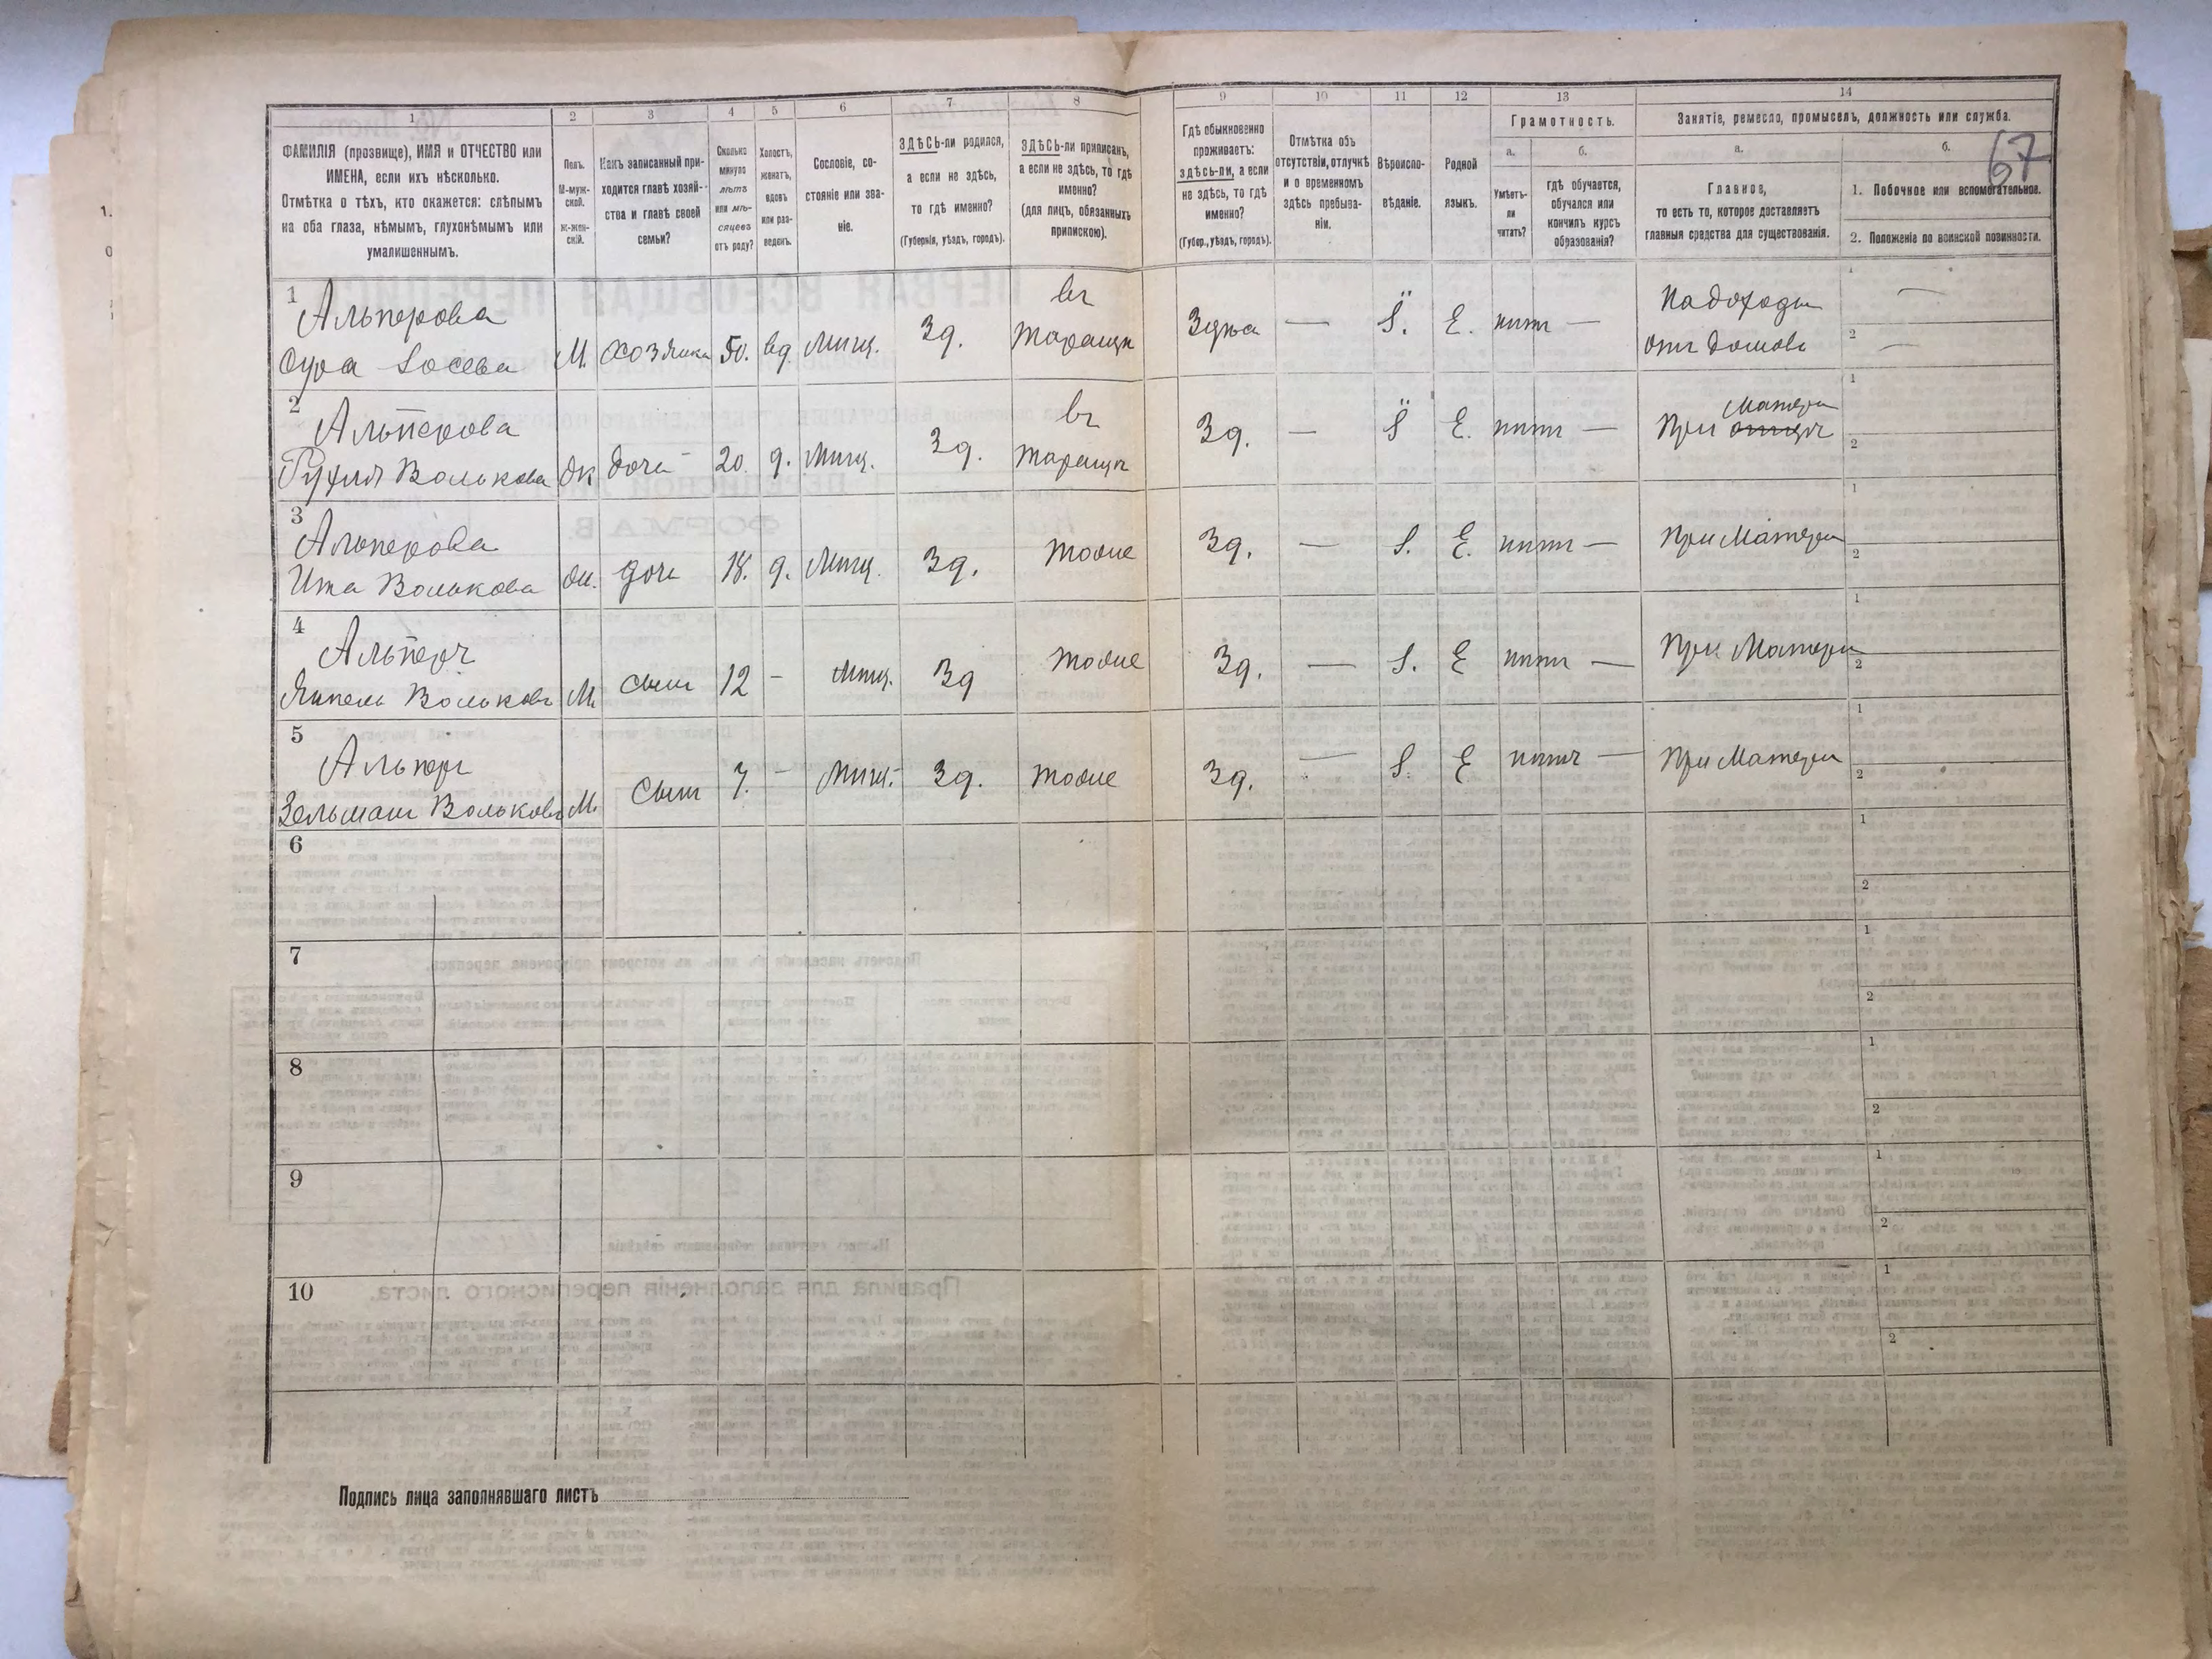 67
1 2 3 4 5 6 7 8 9 10 11 12 13 14
ФАМИЛІЯ (прозвище), ИМЯ и ОТЧЕСТВО или
ИМЕНА, если ихъ нѣсколько.
Отмѣтка о тѣхъ, кто окажется: слѣпымъ
на оба глаза, нѣмымъ, глухонѣмымъ или
умалишеннымъ.
Полъ.
М-муж-
ской.
Ж-жен-
скій.
Какъ записанный при-
ходится главѣ хозяй-
ства и главѣ своей
семьи?
Сколько
минуло
лѣтъ
или мѣ-
сяцевъ
отъ роду?
Холостъ,
женатъ,
вдовъ
или раз-
веденъ.
Сословіе, со-
стояніе или зва-
ніе.
ЗДѢСЬ-ли родился,
а если не здѣсь,
то гдѣ именно?
(Губернія, уѣздъ, городъ).
ЗДѢСЬ-ли приписанъ,
а если не здѣсь, то гдѣ
именно?
(для лицъ, обязанныхъ
припискою).
Гдѣ обыкновенно
проживаетъ:
здѣсь-ли, а если
не здѣсь, то гдѣ
именно?
(Губер., уѣздъ, городъ).
Отмѣтка объ
отсутствіи, отлучкѣ
и о временномъ
здѣсь пребыва-
ніи.
Вѣроиспо-
вѣданіе.
Родной
языкъ.
Грамотность.
а.
Умѣетъ-
ли
читать?
б.
гдѣ обучается,
обучался или
кончилъ курсъ
образованія?
Занятіе, ремесло, промыселъ, должность или служба.
а.
Главное,
то есть то, которое доставляетъ
главныя средства для существованія.
б.
1. Побочное или вспомогательное.
2. Положеніе по воинской повинности.
1 Альперова въ 1
М. хозяйка 50. вд. Мищ. Зд. Таращи Здѣсь — Е. нѣтъ — 2
2 Альперова въ Матери 1
Волькова дочь 20. д. Мищ. Зд. Таращи Зд. — Е. нѣтъ — При 2
3 Альперова 1
Ита Волькова дочь 18. д. Мищ. Зд. тоже Зд. — Е. нѣтъ — При Матери 2
4 Альперъ 1
Вольковъ М. сынъ 12 - Мищ. Зд тоже Зд. — Е нѣтъ — При Матери 2
5 Альперъ 1
Зельманъ Вольковъ М. Сынъ 7. - Мищ. Зд. тоже Зд. — Е нѣтъ — При Матери 2
6 1
2
7 1
2
8 1
2
9 1
2
10 1
2
Подпись лица заполнявшаго листъ